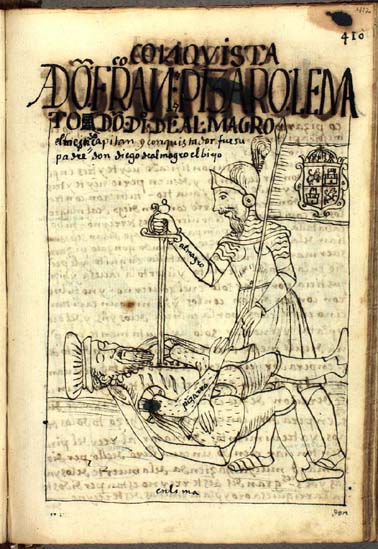 412
410
COИQVISTA
A DŌ FRAN.CO PIZARO LE MA
TO DŌ DI.º DE ALMAGRO
el mestiso capitan y conquistador fue su
padre don diego de almagro el biejo
almagro
pizarro
en lima
don